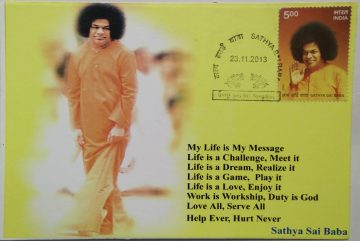 SATHYA SAI BABA
23.11.2013
5.00
भारत
INDIA
SATHYA SAI BABA
My Life is My Message
Life is a Challenge, Meet it
Life is a Dream, Realize it
Life is a Game, Play it
Life is a Love, Enjoy it
Work is Workship, Duty is God
Love All, Serve All
Help Ever, Hurt Never
Sathya Sai Baba